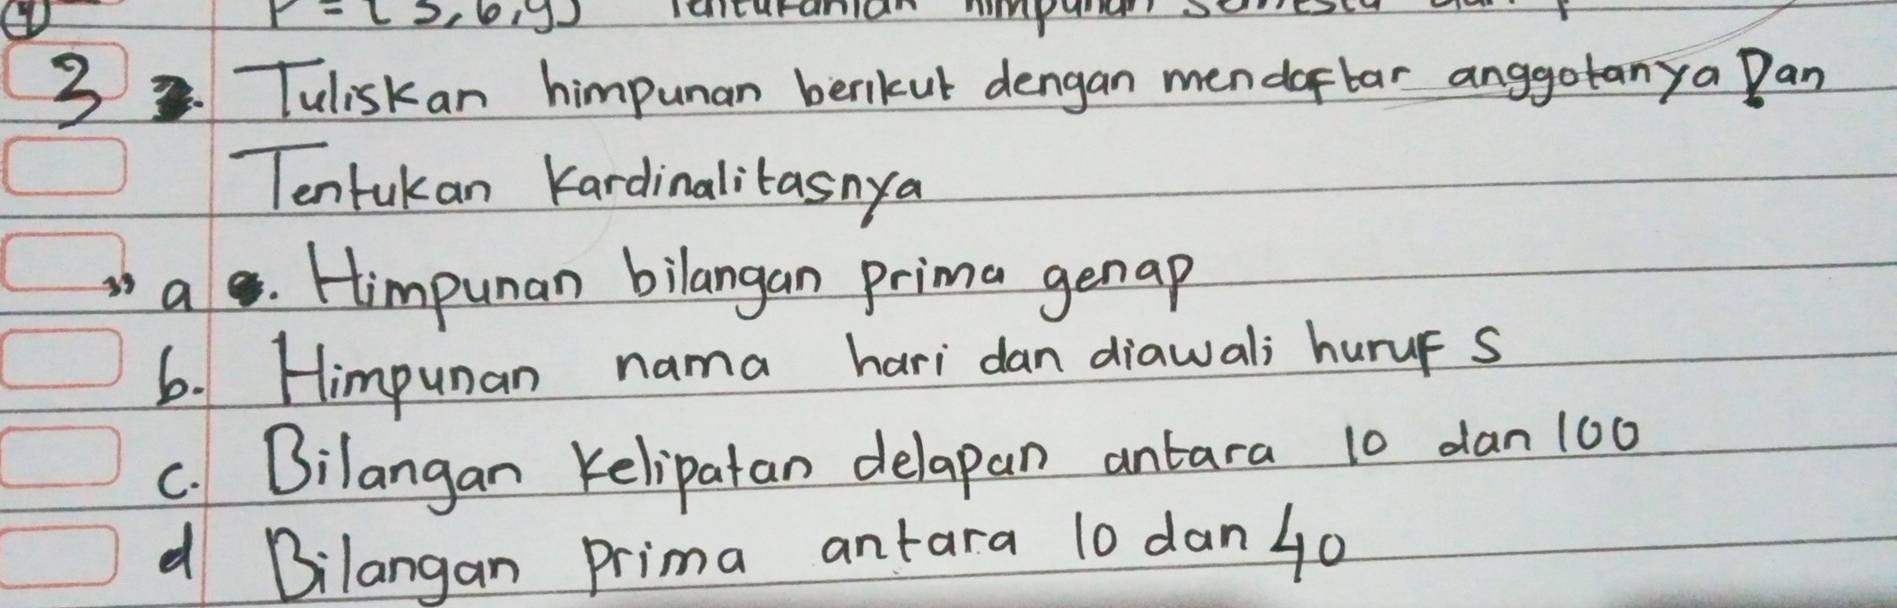 P = { 3, 6, 9 } Tentukanlah himpunan semesta dari P
3 2. Tuliskan himpunan berikut dengan mendaftar anggotanya Dan
Tentukan Kardinalitasnya
a a. Himpunan bilangan prima genap
b. Himpunan nama hari dan diawali huruf s
c. Bilangan Kelipatan delapan antara 10 dan 100
d Bilangan Prima antara 10 dan 40